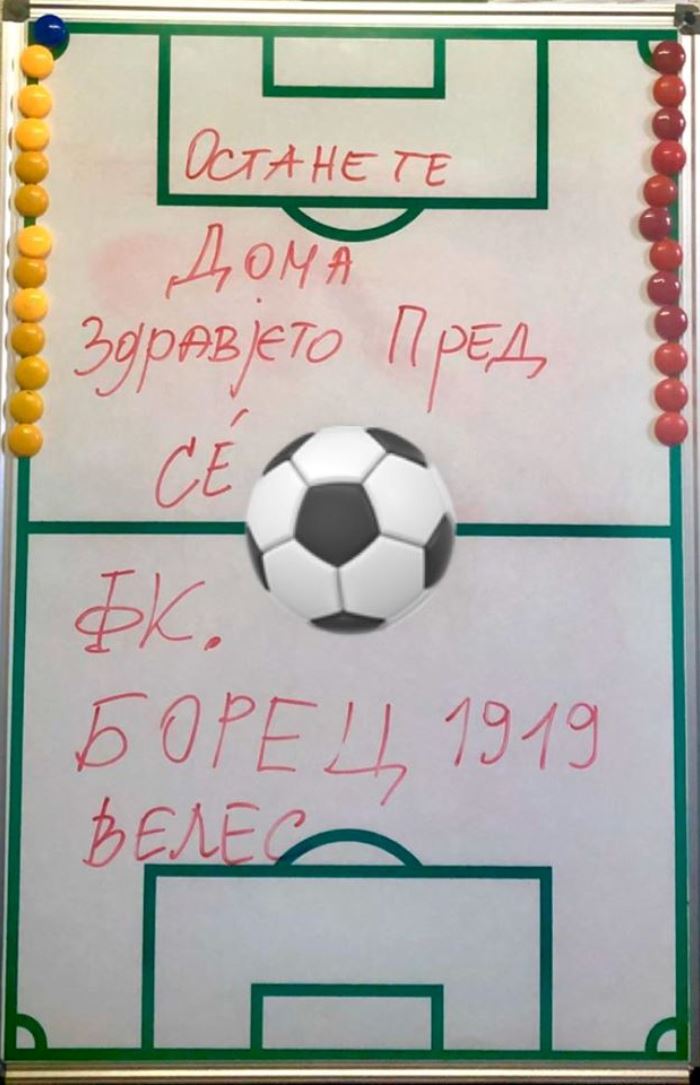 Останете
Дома
Здравјето Пред
СЀ
ФК.
БОРЕЦ 1919
ВЕЛЕС